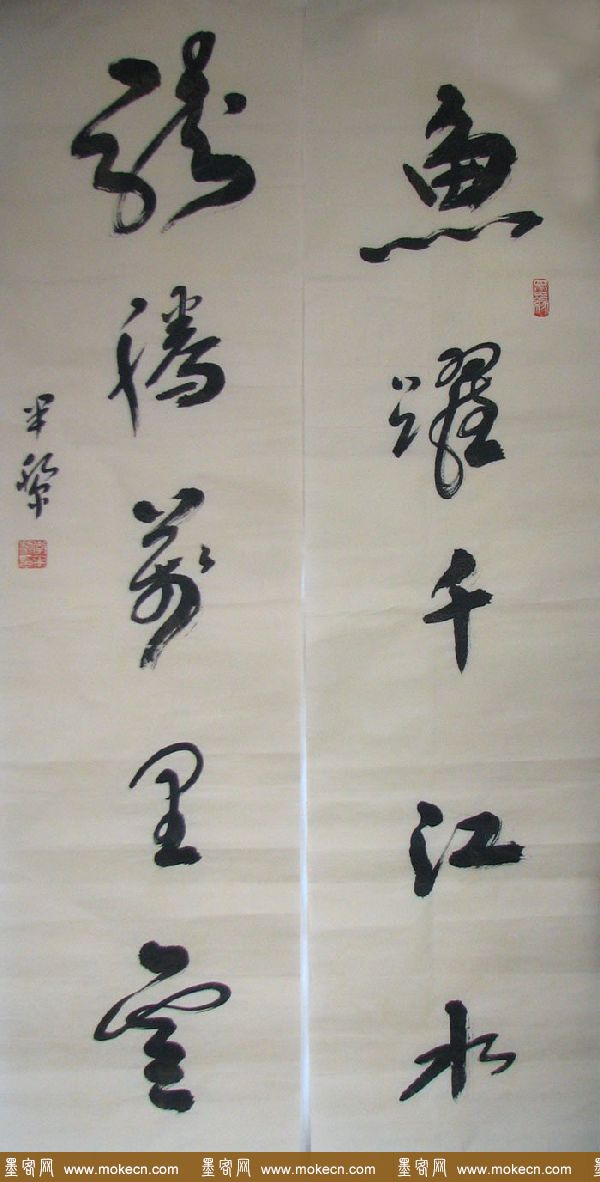 魚躍千江水
龍騰萬里雲
半黎
墨客网 www.mokecn.com 墨客网 www.mokecn.com 墨客网 www.mokecn.com